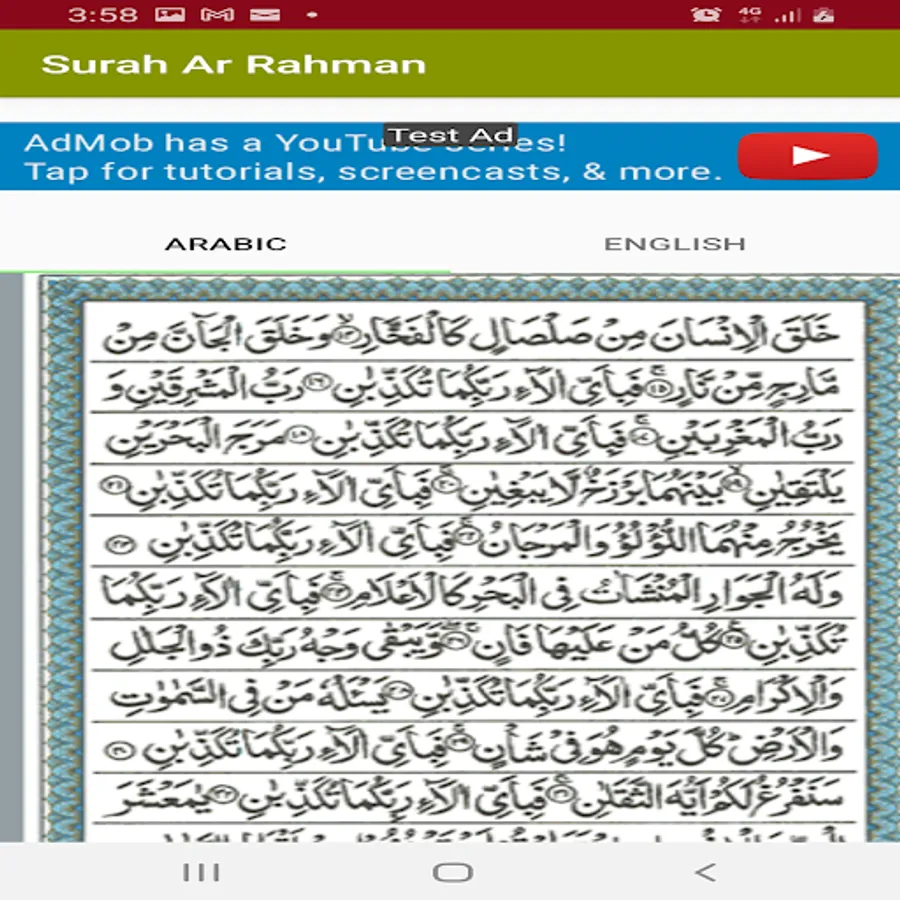 3:58
4G
Surah Ar Rahman
Test Ad
AdMob has a YouTube series!
Tap for tutorials, screencasts, & more.
ARABIC
ENGLISH
خَلَقَ الْاِنْسَانَ مِنْ صَلْصَالٍ كَالْفَخَّارِ ۙ﴿۱۴﴾ وَخَلَقَ الْجَآنَّ مِنْ
مَّارِجٍ مِّنْ نَّارٍ ۚ﴿۱۵﴾ فَبِاَىِّ اٰلَآءِ رَبِّكُمَا تُكَذِّبٰنِ ﴿۱۶﴾ رَبُّ الْمَشْرِقَيْنِ وَ
رَبُّ الْمَغْرِبَيْنِ ۚ﴿۱۷﴾ فَبِاَىِّ اٰلَآءِ رَبِّكُمَا تُكَذِّبٰنِ ﴿۱۸﴾ مَرَجَ الْبَحْرَيْنِ
يَلْتَقِيٰنِ ۙ﴿۱۹﴾ بَيْنَهُمَا بَرْزَخٌ لَّا يَبْغِيٰنِ ۚ﴿۲۰﴾ فَبِاَىِّ اٰلَآءِ رَبِّكُمَا تُكَذِّبٰنِ ﴿۲۱﴾
يَخْرُجُ مِنْهُمَا اللُّؤْلُؤُ وَالْمَرْجَانُ ۚ﴿۲۲﴾ فَبِاَىِّ اٰلَآءِ رَبِّكُمَا تُكَذِّبٰنِ ﴿۲۳﴾
وَلَهُ الْجَوَارِ الْمُنْشَاٰتُ فِى الْبَحْرِ كَالْاَعْلَامِ ۚ﴿۲۴﴾ فَبِاَىِّ اٰلَآءِ رَبِّكُمَا
تُكَذِّبٰنِ ﴿۲۵﴾ كُلُّ مَنْ عَلَيْهَا فَانٍ ۚ﴿۲۶﴾ وَّيَبْقٰى وَجْهُ رَبِّكَ ذُو الْجَلٰلِ
وَالْاِكْرَامِ ۚ﴿۲۷﴾ فَبِاَىِّ اٰلَآءِ رَبِّكُمَا تُكَذِّبٰنِ ﴿۲۸﴾ يَسْئَلُهٗ مَنْ فِى السَّمٰوٰتِ
وَالْاَرْضِ ؕ كُلَّ يَوْمٍ هُوَ فِىْ شَاْنٍ ۚ﴿۲۹﴾ فَبِاَىِّ اٰلَآءِ رَبِّكُمَا تُكَذِّبٰنِ ﴿۳۰﴾
سَنَفْرُغُ لَكُمْ اَيُّهَ الثَّقَلٰنِ ۚ﴿۳۱﴾ فَبِاَىِّ اٰلَآءِ رَبِّكُمَا تُكَذِّبٰنِ ﴿۳۲﴾ يٰمَعْشَرَ